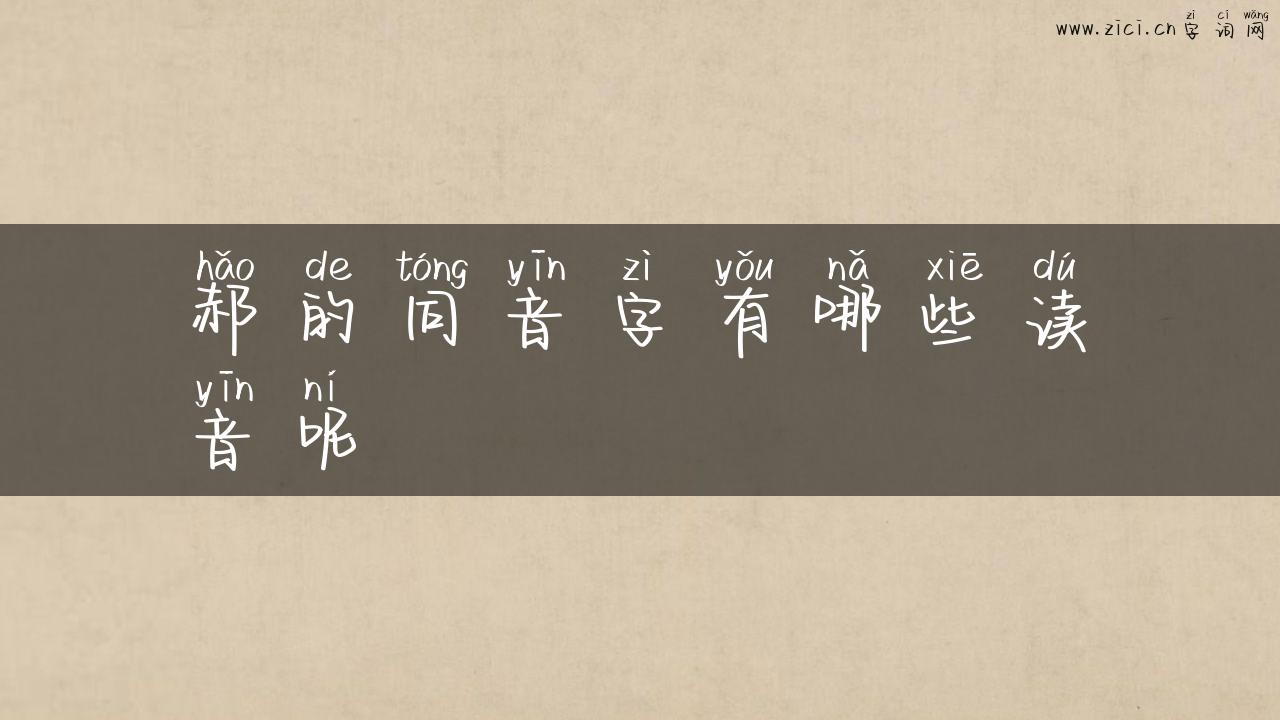 zì cí wǎng
www.zici.cn 字词网
hǎo de tóng yīn zì yǒu nǎ xiē dú
郝的同音字有哪些读
yīn ní
音呢